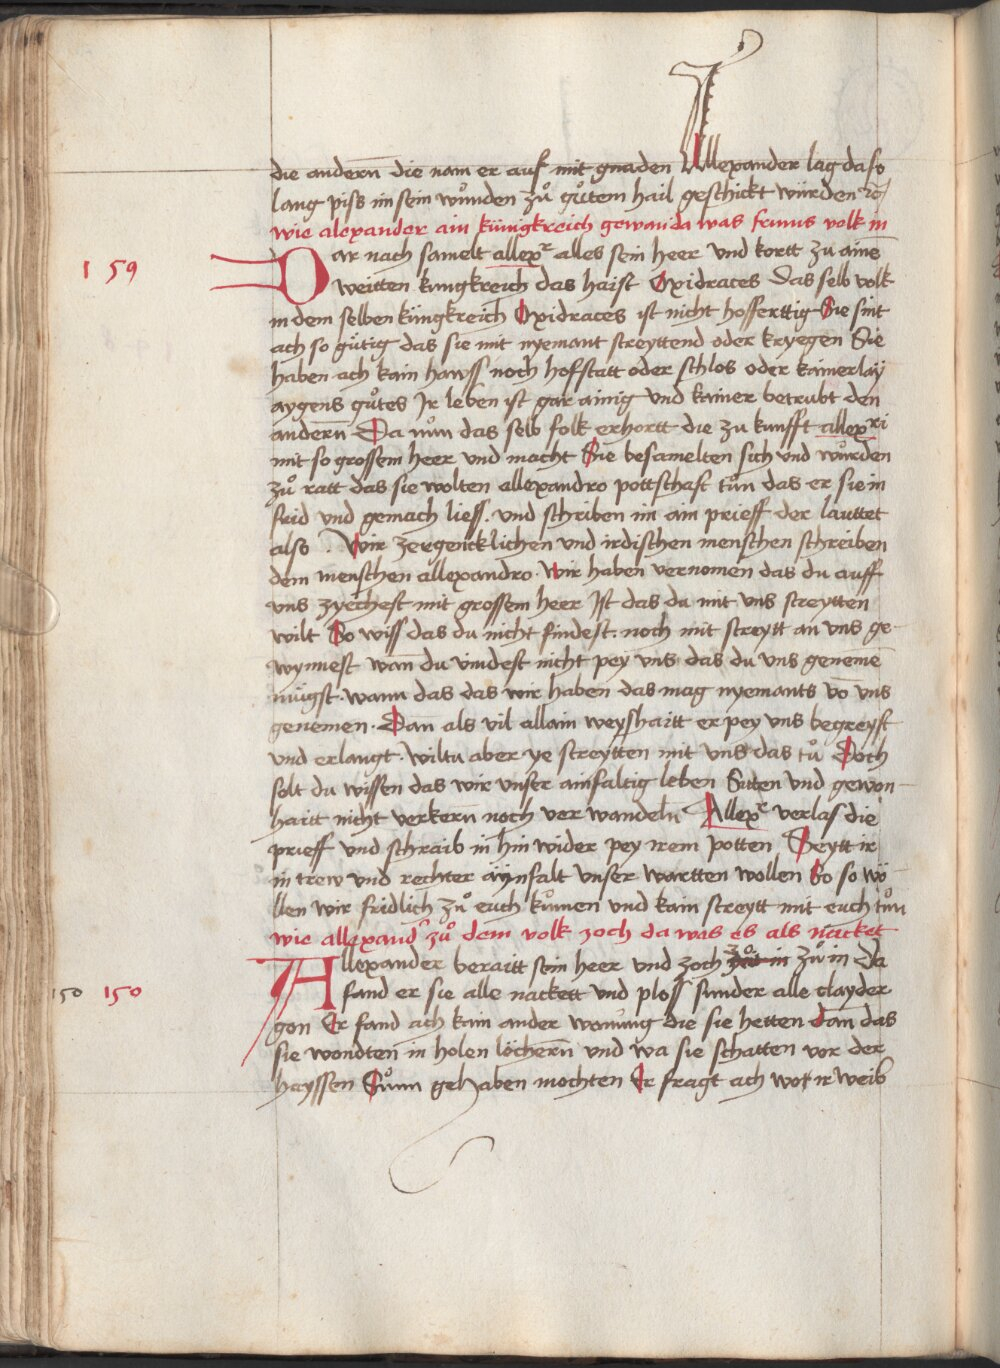 die andern̄ die nam er auf mit gnaden Allexander lag da so
lang piss im sein wůnden zů gůtem hail geschickt würden
wie alexander ain künigkreich gewan da was frums volk in
159 Dar nach samelt allexr alles sein heer und kortt zu ainē
weitten kungkreich das haist Oxidraces Das selb volk
in dem selben küngkreich Oxidraces ist nicht hofferttig Sie sint
ach so gütig das sie mit nyemant streyttend oder kryegen Sie
haben ach kain hawss noch hofstatt oder schlos oder kainerlay
aygens gůtes Ir leben ist gar ainig und kainer betrubt den
andern̄ Da nůn das selb folk erhortt die zu kunfft allexri
mit so grossem heer und macht Sie besamelten sich und wůrden
zů ratt das sie wolten allexandro pottschaft tůn das er sie in
frid und gemach liess. und schriben im am prieff der lauttet
also . Wir zergencklichen und irdischen menschen schreiben
dem menschen allexandro. Wir haben vernomen das du auff
uns zyechest mit grossem heer Ist das du mit uns streytten
wilt So wiss das du nicht findest. noch mit streytt an uns ge-
wynnest wan̄ du vindest nicht pey uns das du uns genemē
mügst. wann das das wir haben das mag nyemants vō uns
genemen. Dan als vil allain weyshaitt er pey uns begreyft
und erlangt. wiltu aber ye streytten mit uns das tů Doch
solt du wissen das wir unser ainfaltig leben Sitten und gewon-
haitt nicht verkern̄ noch ver wandeln̄ Allexr verlas die
prieff und schraib in hin wider pey irem potten Seytt ir
in trew und rechter aynfalt unser wartten wollen So so wö
llen wir fridlich zů euch kůmen und kain streytt mit euch tůn
wie allexand' zů dem volk zoch da was es als nacket
Allexander beraitt sein heer und zoch zů in Da
150 150 fand er sie alle nackett und ploss sunder alle clayder
gon Er fand ach kain ander wonūng die sie hetten dan̄ das
sie wondten in holen löchern̄ und wa sie schatten vor der
hayssen Sůnn gehaben mochten Er fragt ach wor ir weib